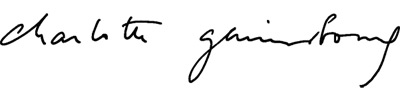 charlotte gainsbourg